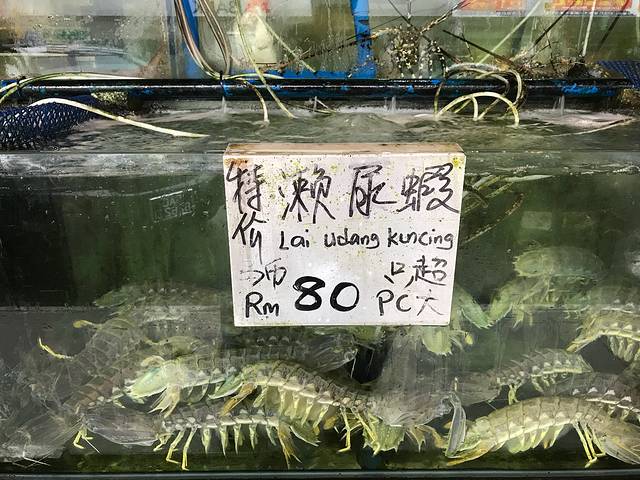 特价 濑尿蝦
Lai udang kuncing
币 只 超大
Rm 80 PC